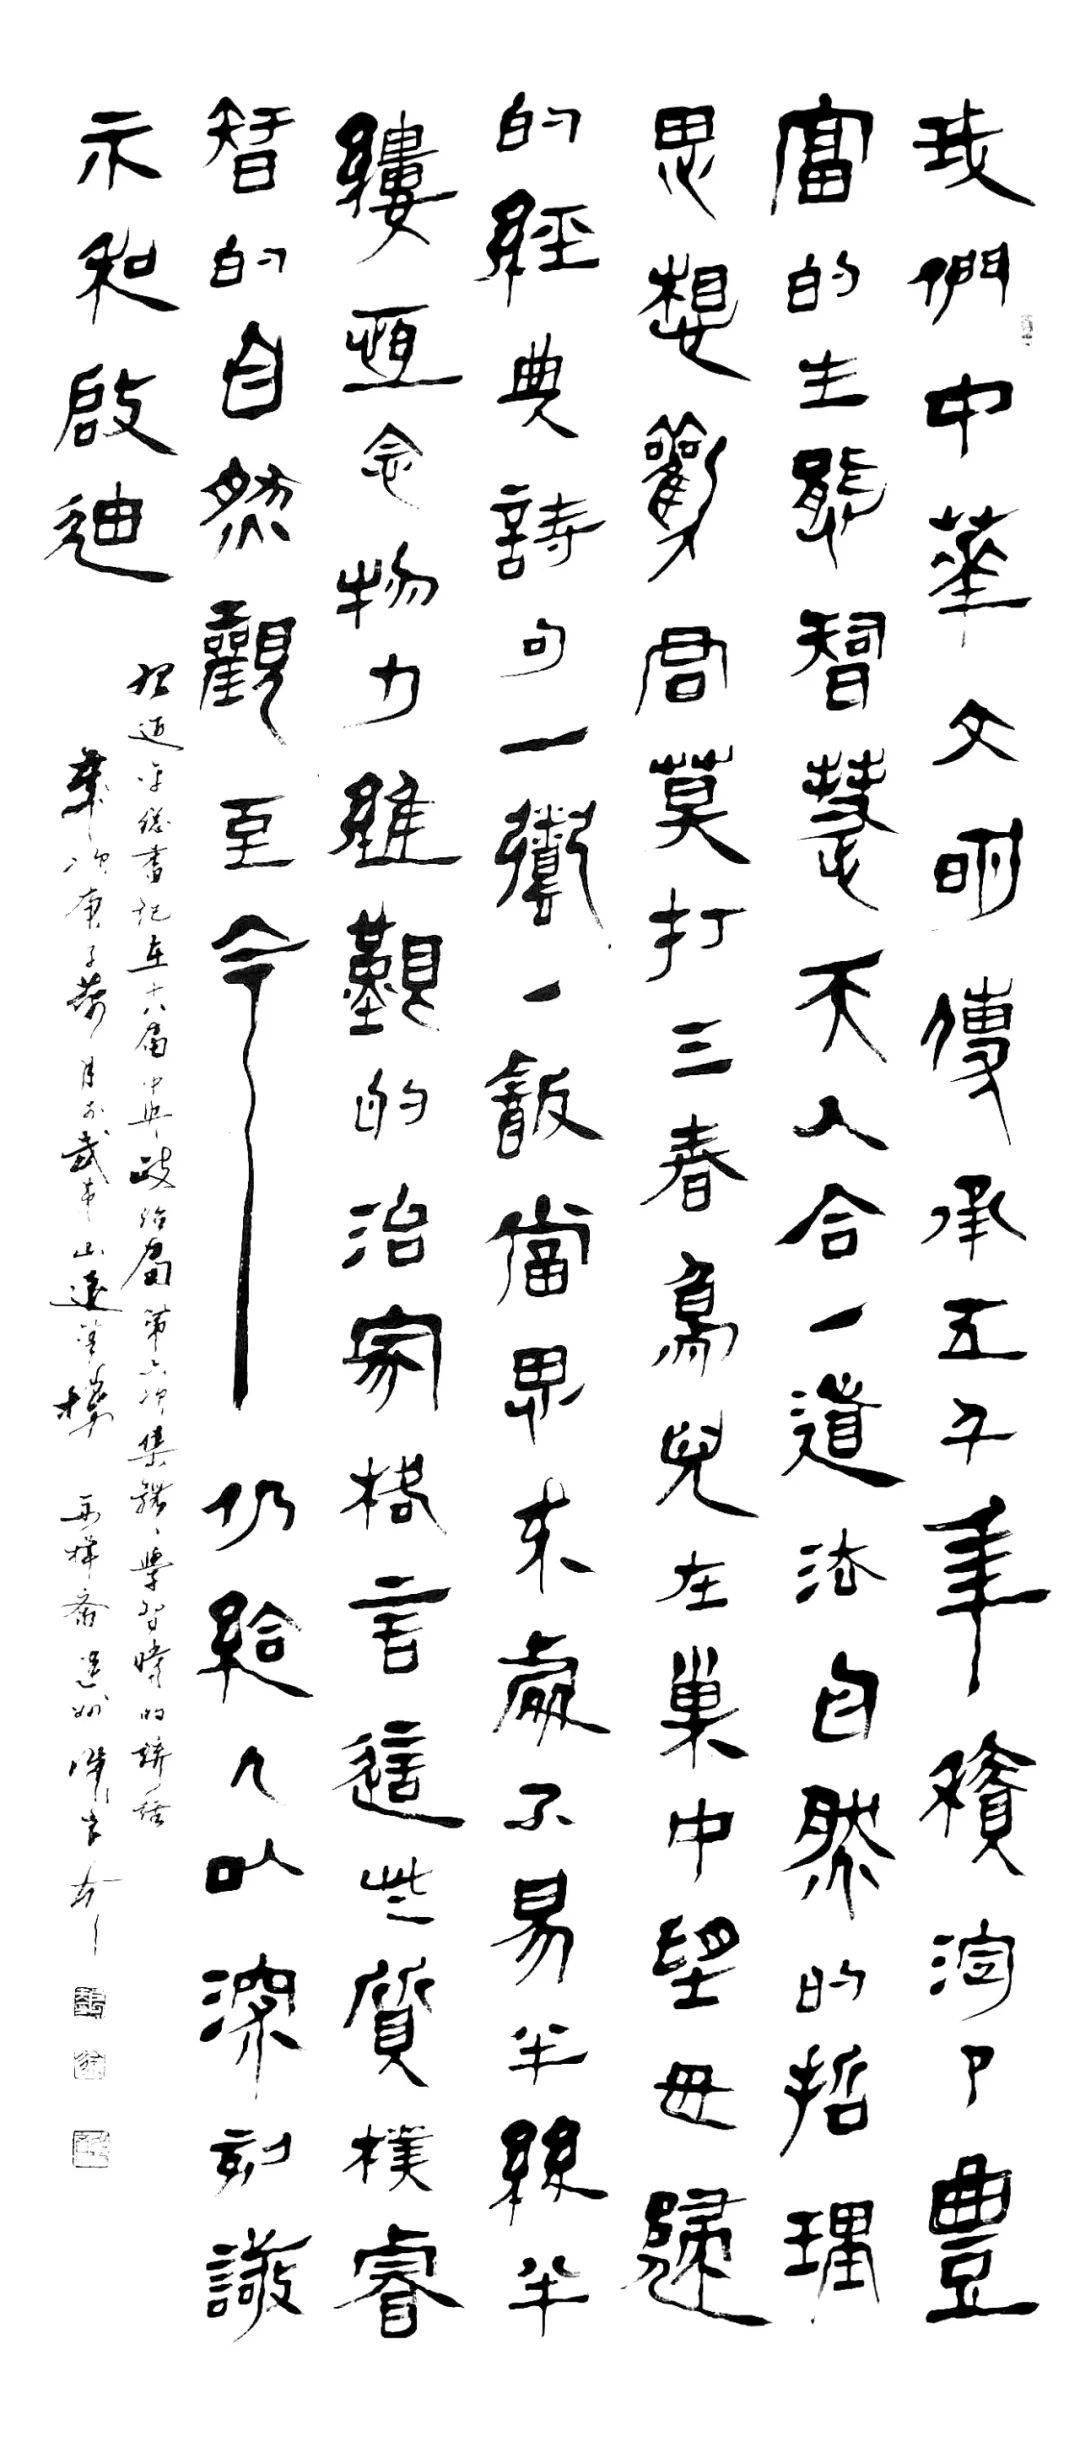 我們中華文明傳承五千年積澱了豐
富的生態智慧天人合一道法自然的哲理
思想勸君莫打三春鳥兒在巢中望母歸
的經典詩句一粥一飯當思來處不易半絲半
縷恆念物力維艱的治家格言這些質樸睿
智的自然觀至今仍給人以深刻警
示和啟迪
習近平總書記在十八屆中央政治局第六次集體學習時的講話
歲次庚子荷月於武市山遠草樓